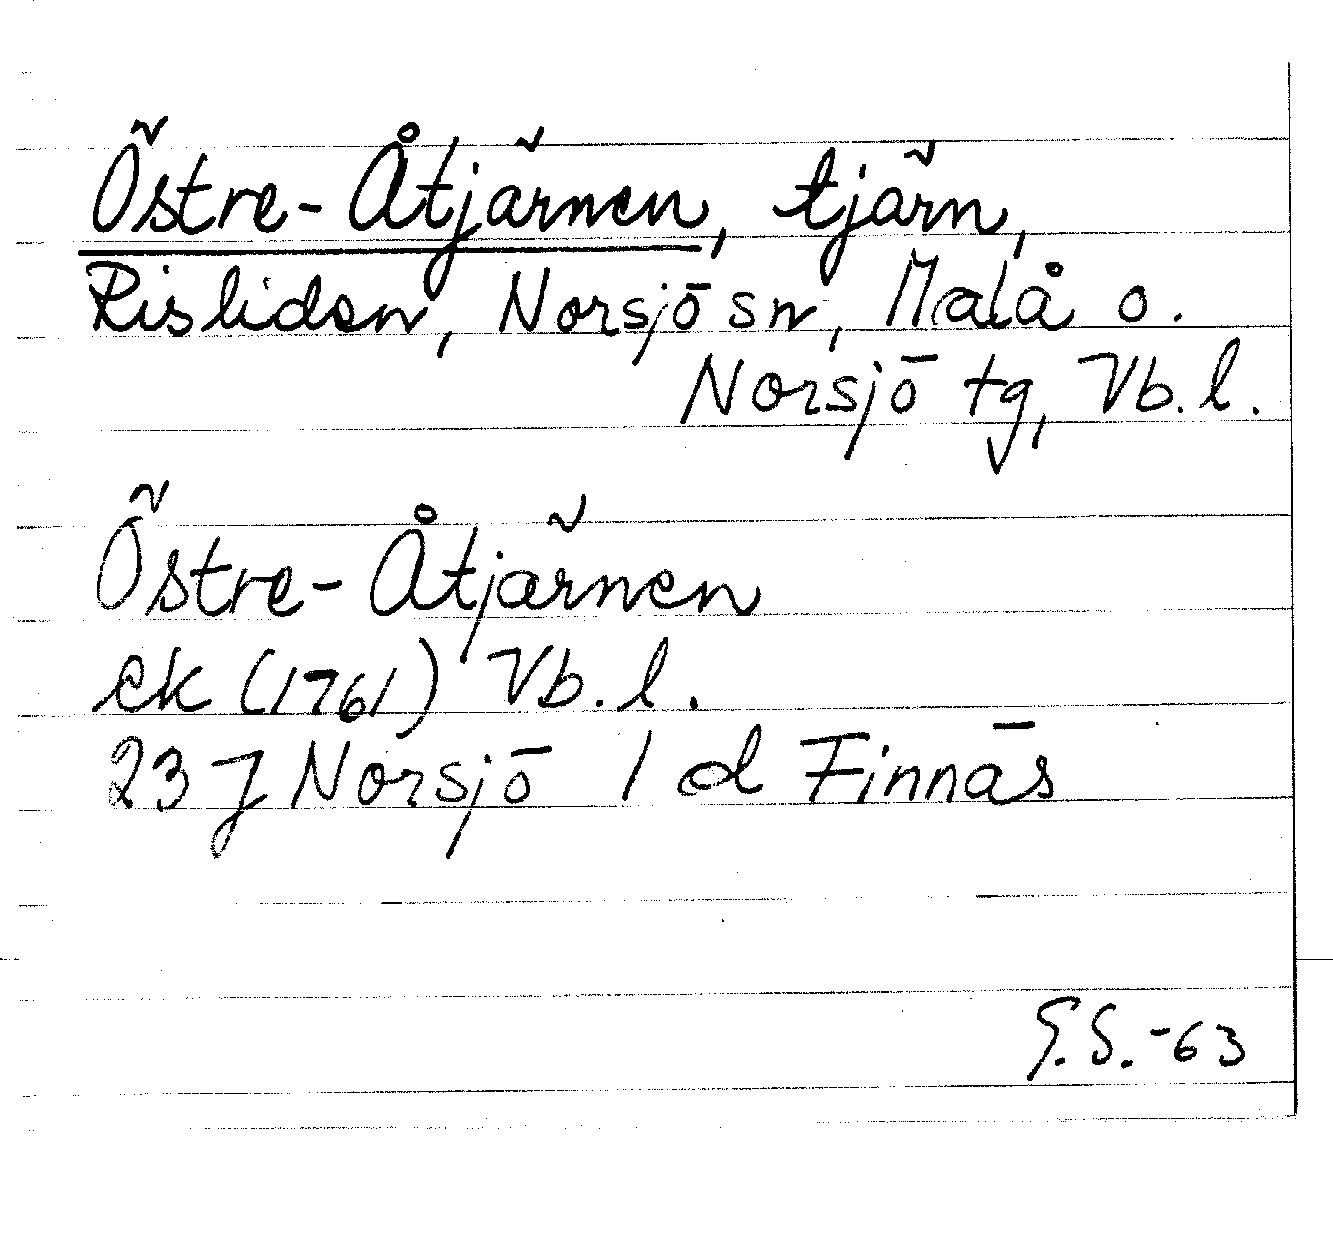 Östre-Åtjärnen, tjärn,
Risliden, Norsjö sn, Malå o.
Norsjö tg, Vb. l.
Östre-Åtjärnen
ek (1761) Vb. l.
23 J Norsjö 1 d Finnäs
G.S.-63